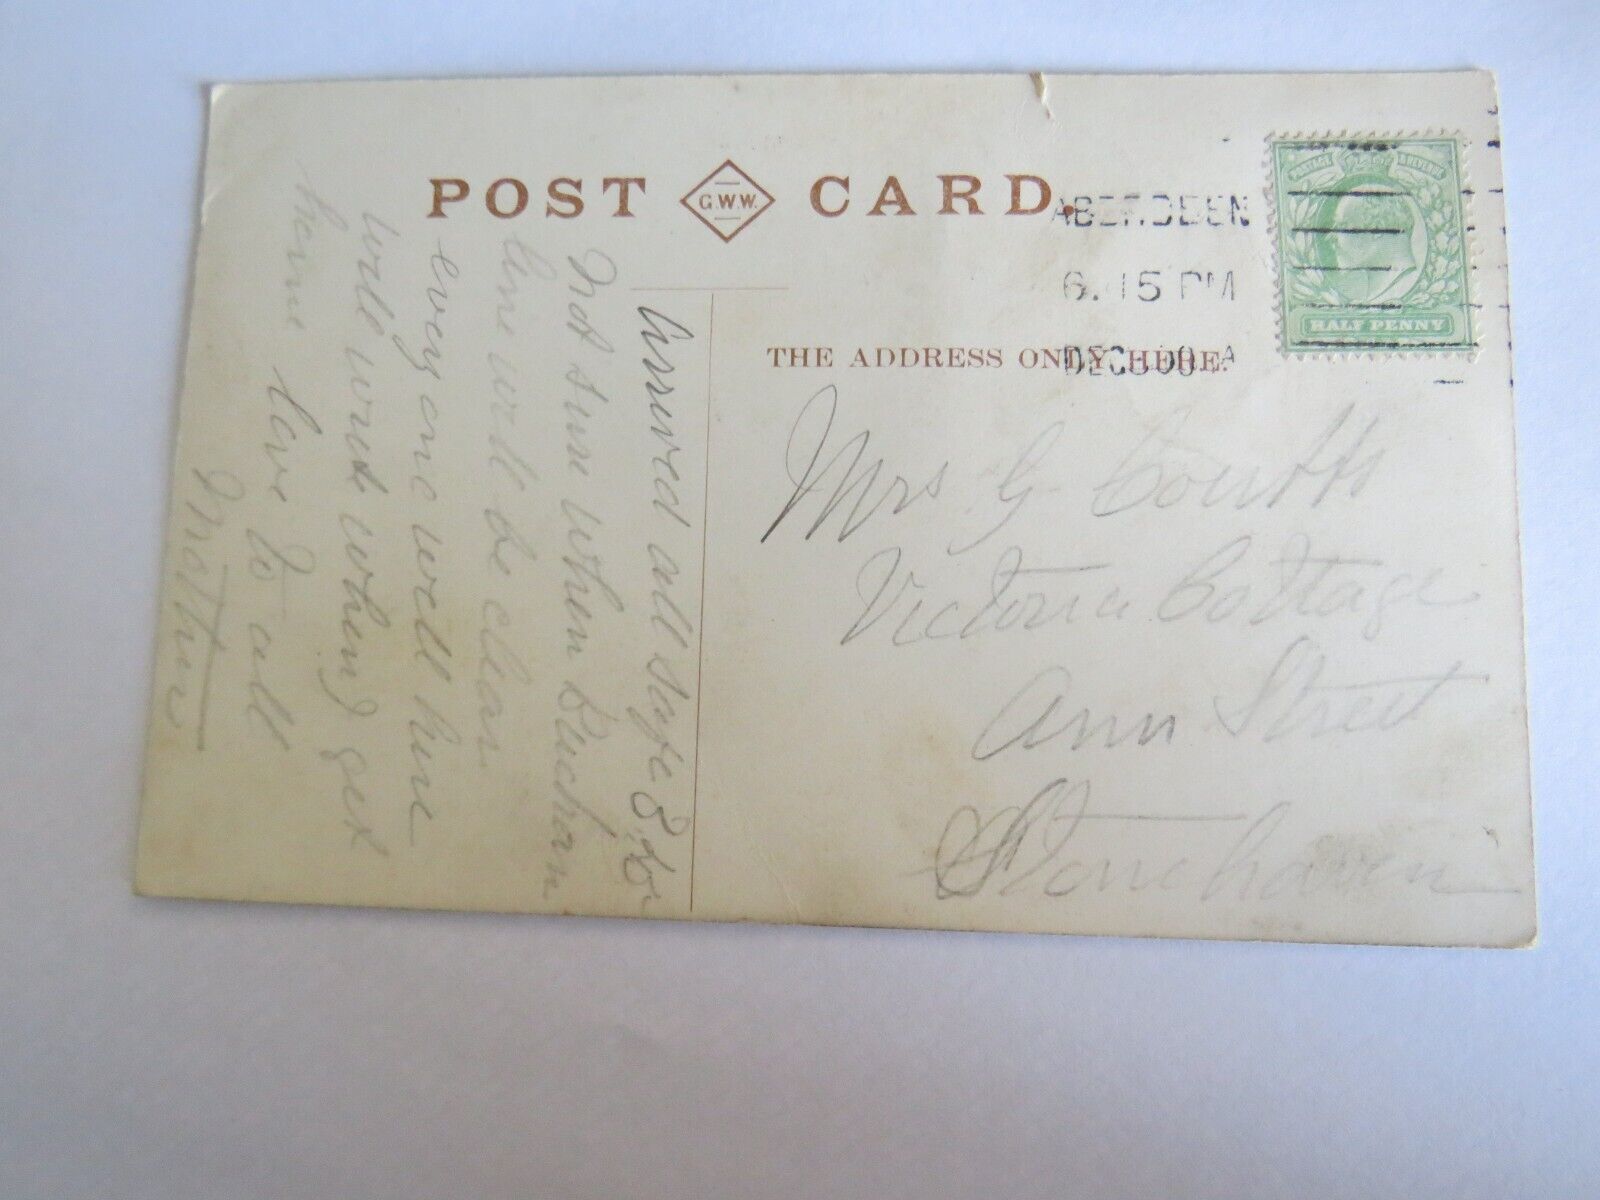 POST G.W.W. CARD.
ABERDEEN
6.15 PM
DEC 08 A
POSTAGE & REVENUE
HALF PENNY
THE ADDRESS ONLY HERE.
Mrs G Coutts
Victoria Cottage
Ann Street
Stonehaven
Arrived all safe
not sure when Buchan
line will be clear
every one well here
will write when I get
home love to all
Mother